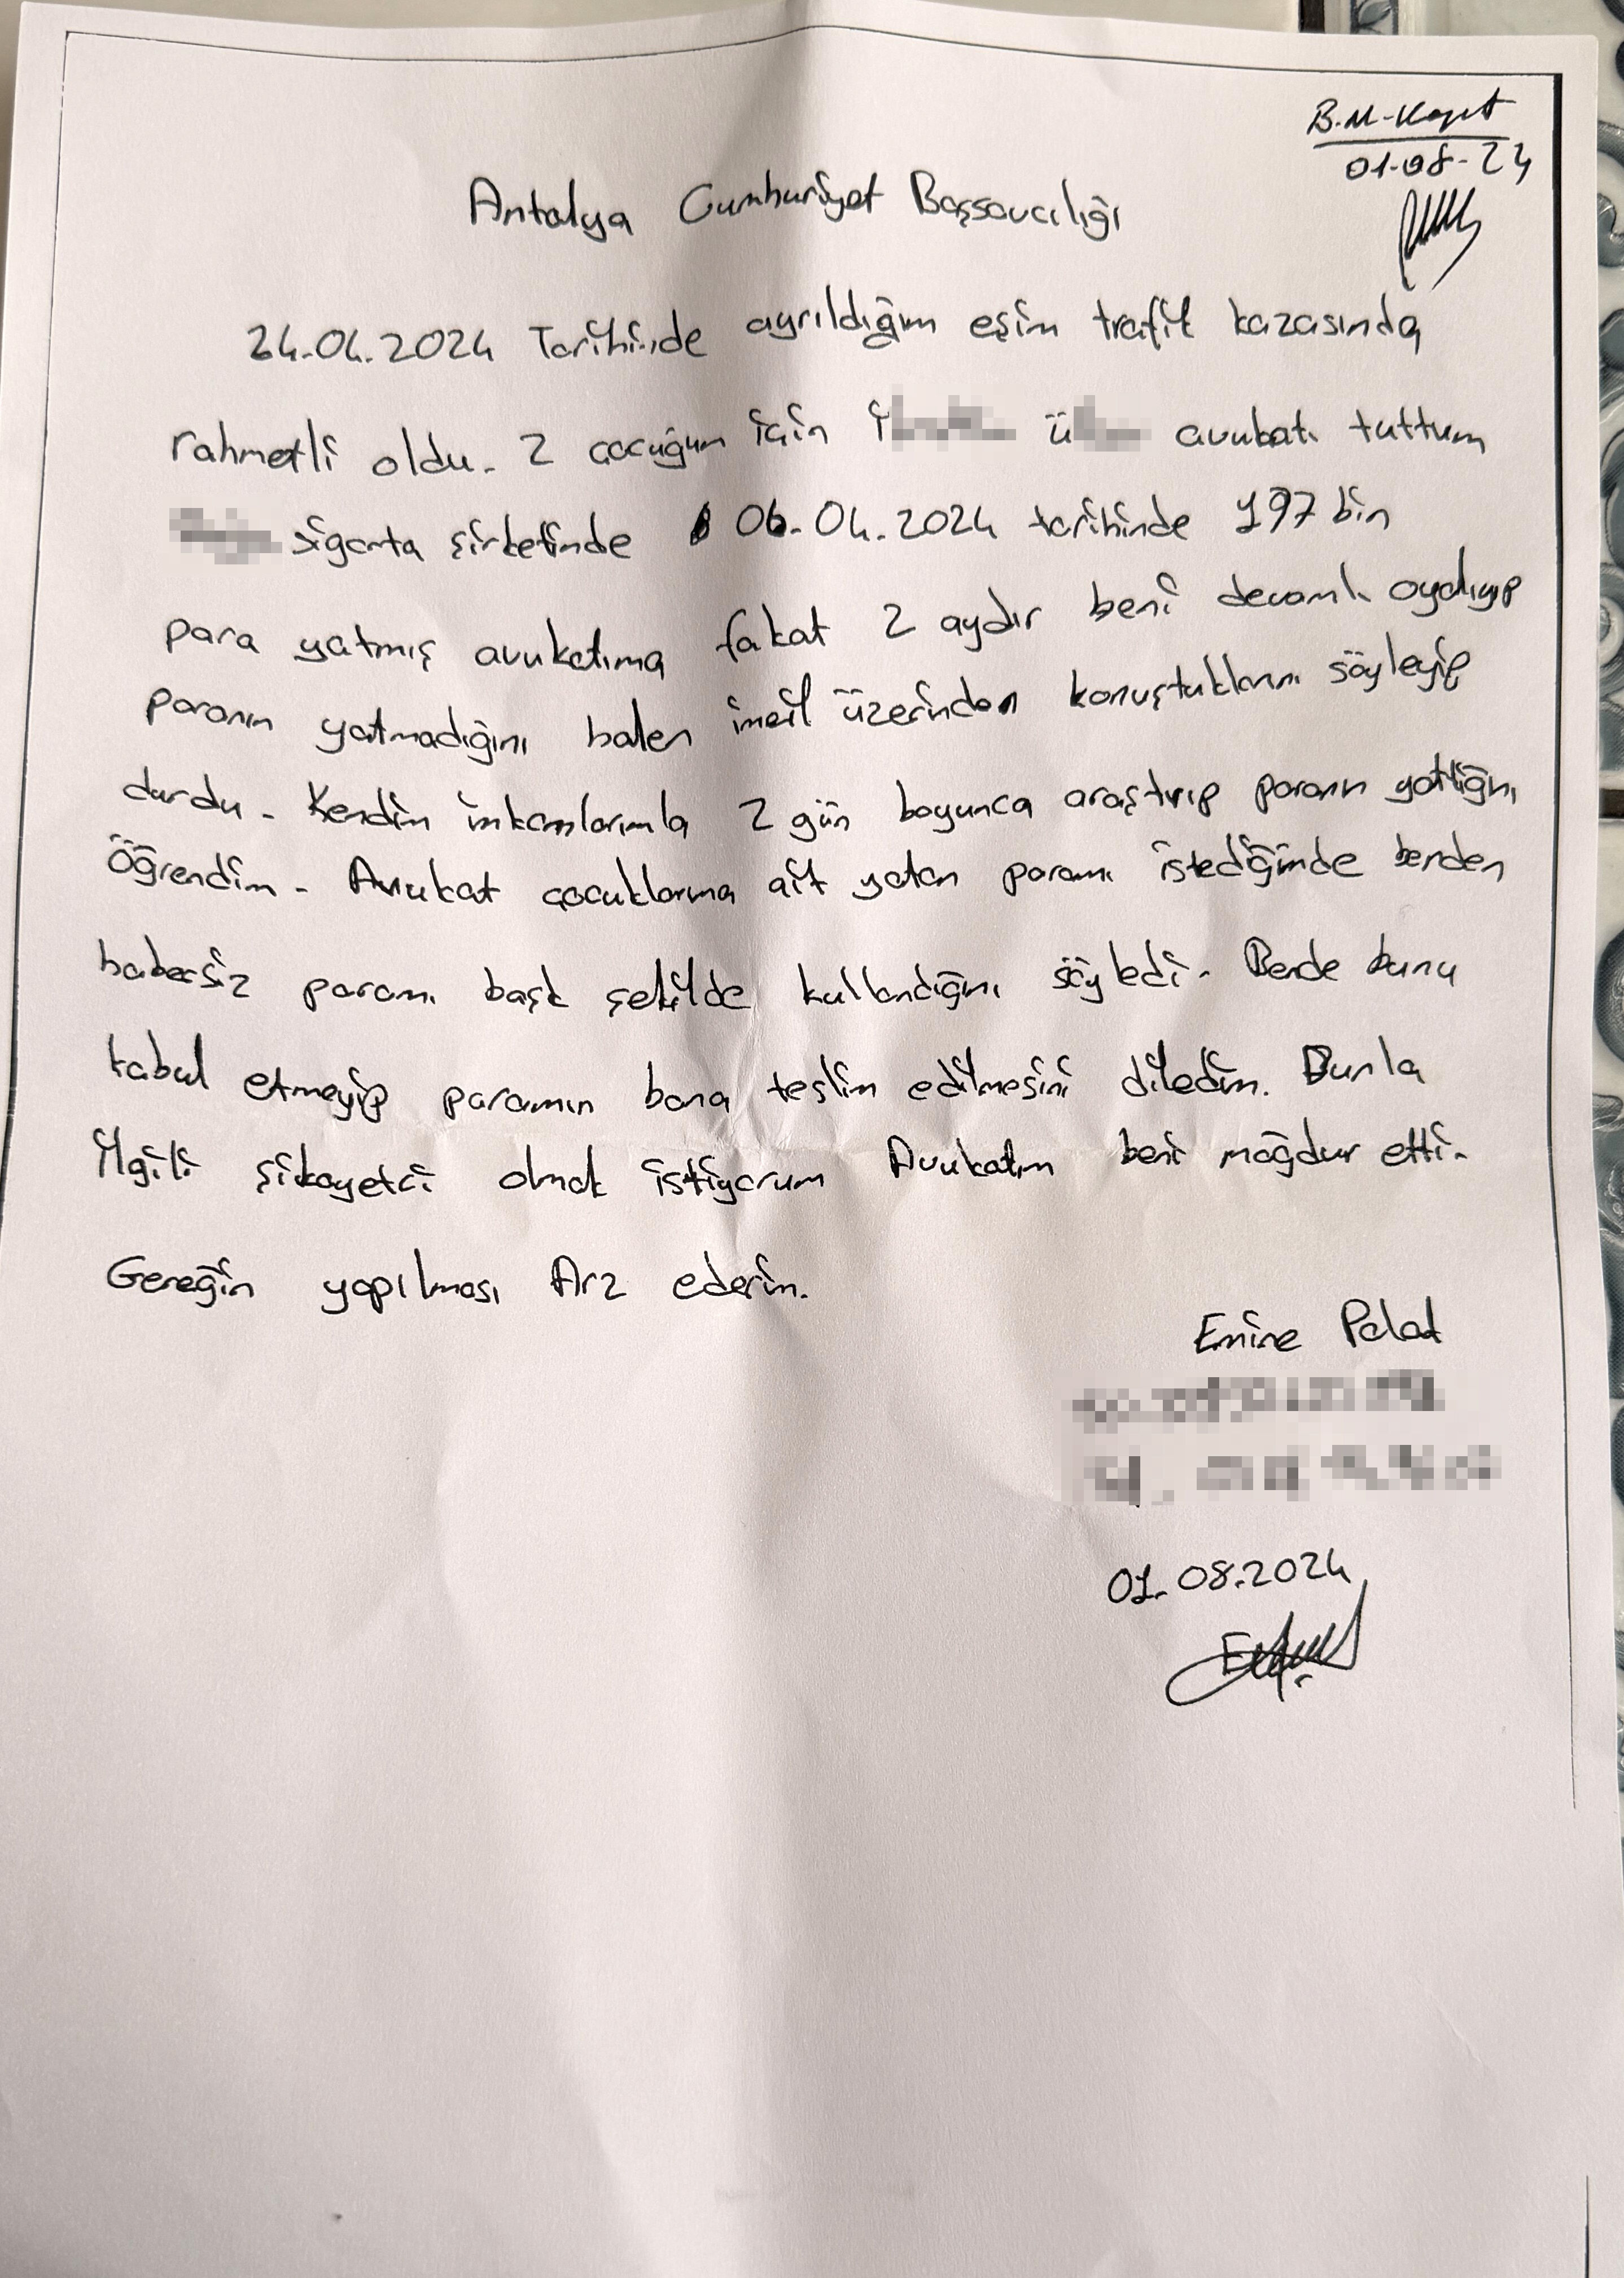 B.M-Kayıt
01-08-24
Antalya Cumhuriyet Başsavcılığı
24.04.2024 Tarihinde ayrıldığım eşim trafik kazasında
rahmetli oldu. 2 çocuğum için avukatı tuttum
sigorta şirketinde 06.04.2024 tarihinde 197 bin
para yatmış avukatıma fakat 2 aydır beni devamlı oyalıyıp
paranın yatmadığını halen imeil üzerinden konuştuklarını söyleyip
durdu. Kendim imkanlarımla 2 gün boyunca araştırıp paranın yattığını
Öğrendim. Avukat çocuklarıma ait yatan paramı istediğimde benden
habersiz paramı başk şekilde kullandığını söyledi. Bende bunu
kabul etmeyip paramın bana teslim edilmesini diledim. Bunla
ilgili şikayetci olmak istiyorum Avukatım beni mağdur etti.
Gereğin yapılması Arz ederim.
Emine Polat
01.08.2024